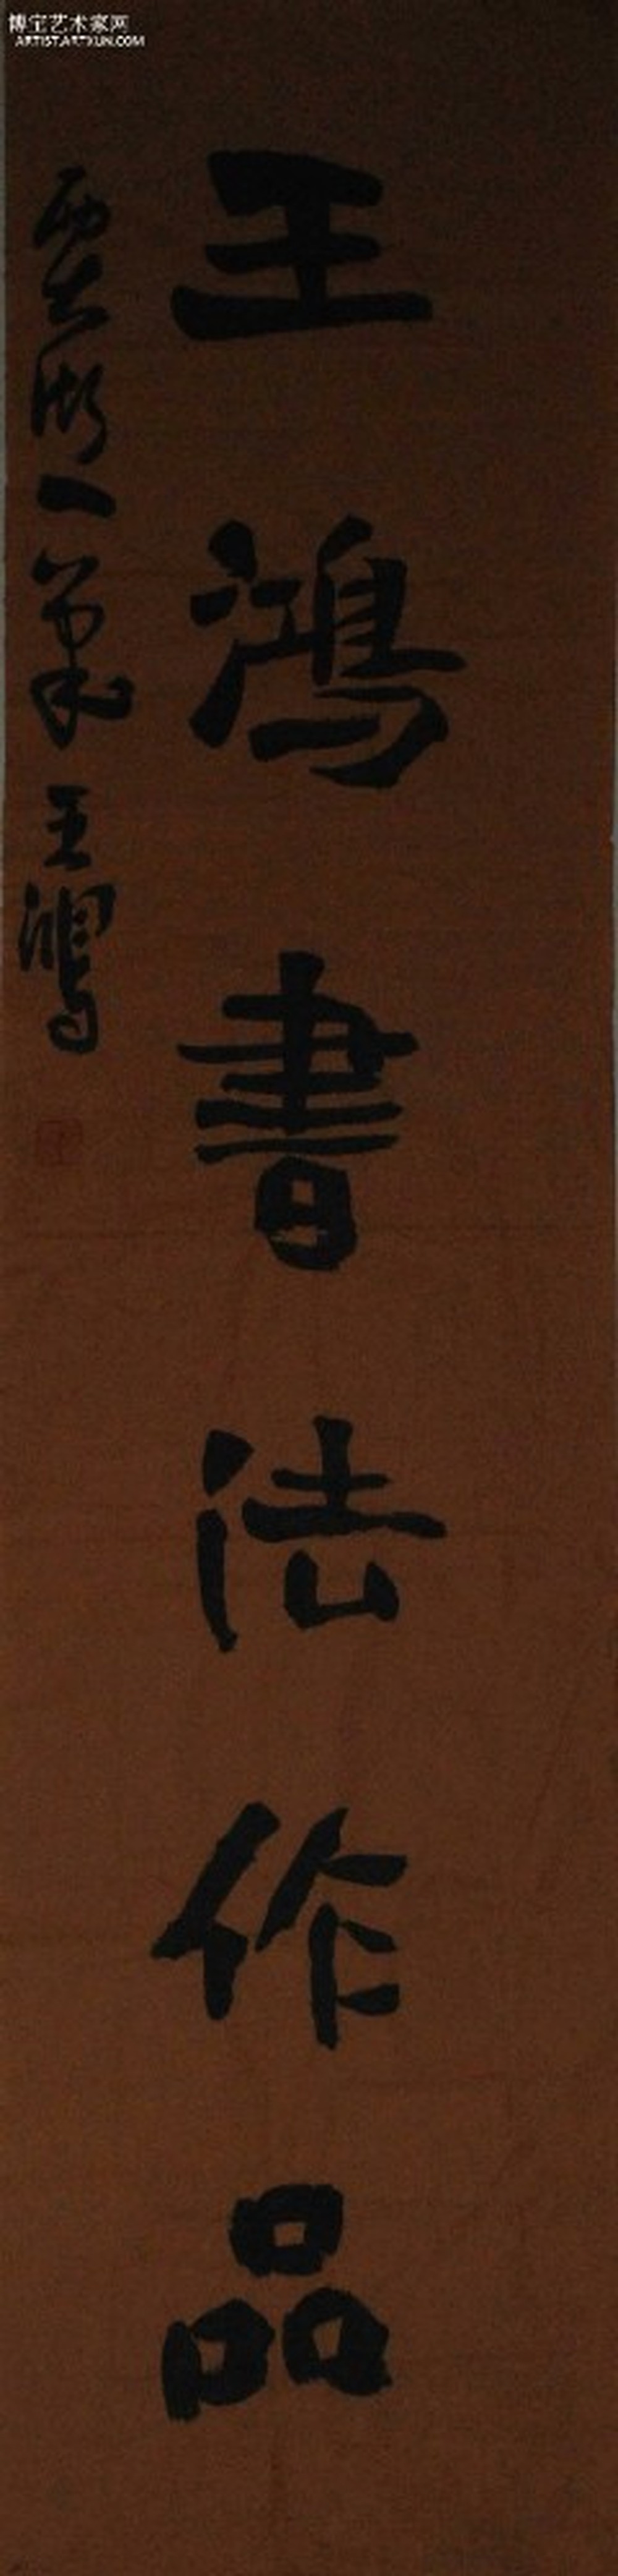 博宝艺术家网
ARTIST.ARTXUN.COM
王鸿書法作品
王鸿